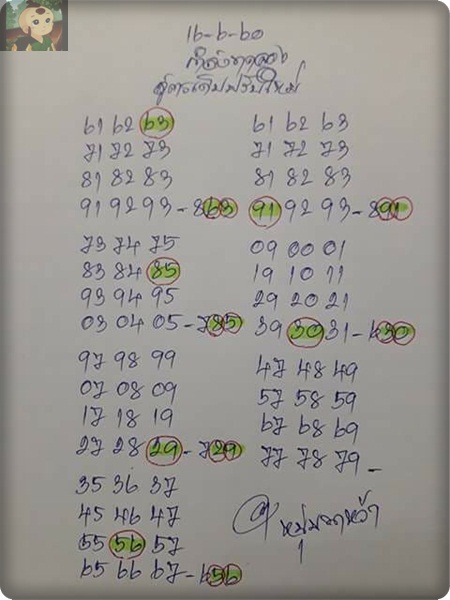 16-6-60
สูตรเดิมปรับใหม่
61 62 63
71 72 73
81 82 83
91 92 93 - 863
73 74 75
83 84 85
93 94 95
03 04 05 - 785
97 98 99
07 08 09
17 18 19
27 28 29 - 729
35 36 37
45 46 47
55 56 57
65 66 67 - 656
61 62 63
71 72 73
81 82 83
91 92 93 - 891
09 00 01
19 10 11
29 20 21
39 30 31 - 630
47 48 49
57 58 59
67 68 69
77 78 79 -